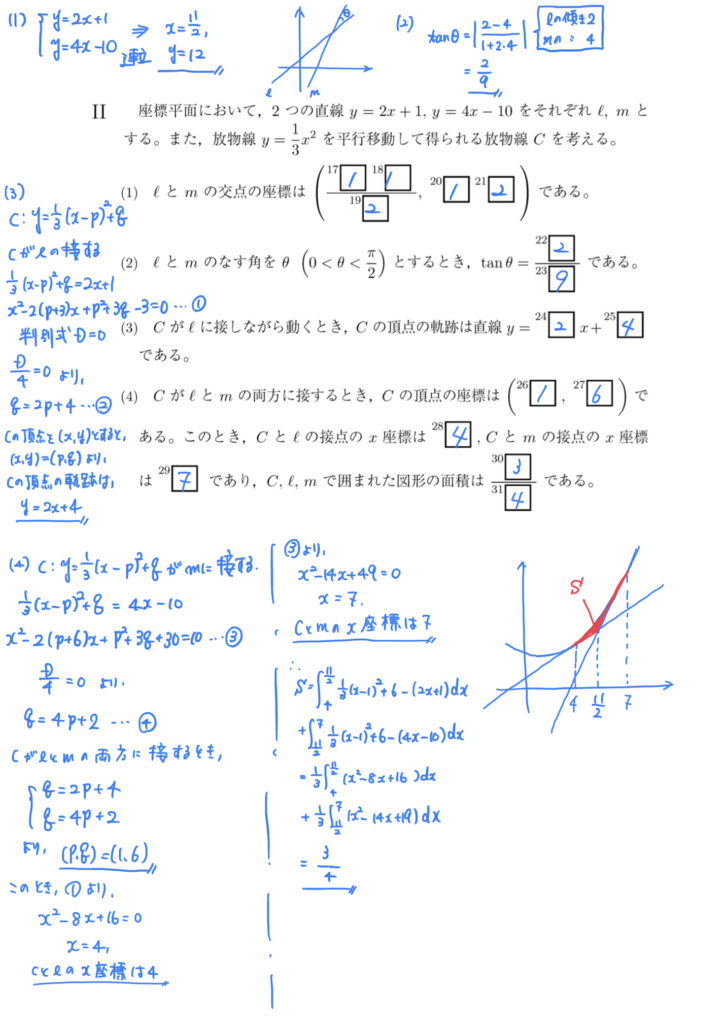 (1) { y=2x+1
y=4x-10 連立 ⇒ x=11/2,
y=12
θ
ℓ m
(2) tanθ=|2-4/1+2・4|
ℓの傾き2
mの 〃 4
=2/9
II 座標平面において，2 つの直線 y = 2x + 1, y = 4x − 10 をそれぞれ ℓ, m と
する。また，放物線 y = 1/3 x² を平行移動して得られる放物線 C を考える。
(1) ℓ と m の交点の座標は ( 17 1 18 1 / 19 2 , 20 1 21 2 ) である。
(2) ℓ と m のなす角を θ (0 < θ < π/2) とするとき，tan θ = 22 2 / 23 9 である。
(3) C が ℓ に接しながら動くとき，C の頂点の軌跡は直線 y = 24 2 x + 25 4
である。
(4) C が ℓ と m の両方に接するとき，C の頂点の座標は ( 26 1 , 27 6 ) で
ある。このとき，C と ℓ の接点の x 座標は 28 4 , C と m の接点の x 座標
は 29 7 であり，C, ℓ, m で囲まれた図形の面積は 30 3 / 31 4 である。
(3)
C: y=1/3(x-p)²+q
Cがℓの接する
1/3(x-p)²+q=2x+1
x²-2(p+3)x+p²+3q-3=0 … ①
判別式D=0
D/4=0 より,
q=2p+4 … ②
Cの頂点を(x,y)とすると,
(x,y)=(p,q)より,
Cの頂点の軌跡は,
y=2x+4
(4) C: y=1/3(x-p)²+q がmに接する.
1/3(x-p)²+q=4x-10
x²-2(p+6)x+p²+3q+30=0 … ③
D/4=0 より.
q=4p+2 … ④
Cがℓとmの両方に接するとき,
{ q=2p+4
q=4p+2
より, (p,q)=(1,6)
このとき, ①より,
x²-8x+16=0
x=4,
Cとℓのx座標は4
③より,
x²-14x+49=0
x=7.
Cとmのx座標は7
∴
S=∫4 11/2 1/3(x-1)²+6-(2x+1)dx
+∫11/2 7 1/3(x-1)²+6-(4x-10)dx
=1/3∫4 11/2 (x²-8x+16)dx
+1/3∫11/2 7 (x²-14x+19)dx
=3/4
S
4 11/2 7